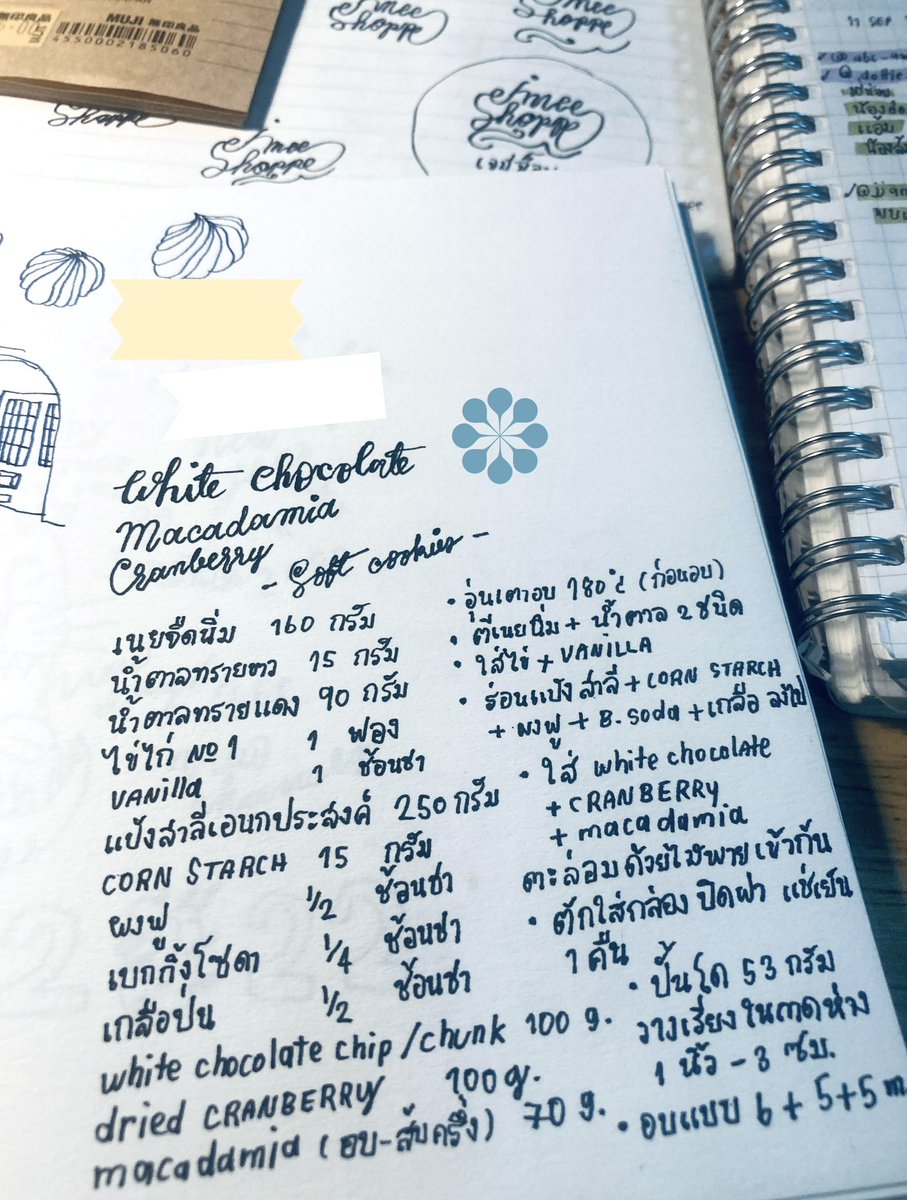 MUJI 無印良品
4550002185060
Shoppe
Shoppe
Shoppe
Shoppe
Shoppe
11 SEP
White chocolate
Macadamia
Cranberry
- Soft cookies -
เนยจืดนิ่ม 160 กรัม
น้ำตาลทรายขาว 15 กรัม
น้ำตาลทรายแดง 90 กรัม
ไข่ไก่ №1 1 ฟอง
VANilla 1 ช้อนชา
แป้งสาลีเอนกประสงค์ 250 กรัม
CORN STARCH 15 กรัม
ผงฟู 1/2 ช้อนชา
เบกกิ้งโซดา 1/4 ช้อนชา
เกลือป่น 1/2 ช้อนชา
white chocolate chip/chunk 100 g.
dried CRANBERRY 100 g.
macadamia (อบ-สับครึ่ง) 70 g.
• อุ่นเตาอบ 180°c (ก่อนอบ)
• ตีเนยนิ่ม + น้ำตาล 2 ชนิด
• ใส่ไข่ + VANILLA
• ร่อนแป้งสาลี + CORN STARCH
+ ผงฟู + B.Soda + เกลือ ลงไป
• ใส่ white chocolate
+ CRANBERRY
+ macadamia
ตะล่อมด้วยไม้พายเข้ากัน
• ตักใส่กล่อง ปิดฝา แช่เย็น
1 คืน
• ปั้นโด 53 กรัม
วางเรียงในถาดห่าง
1 นิ้ว - 3 ซม.
• อบแบบ 6 + 5 + 5 m